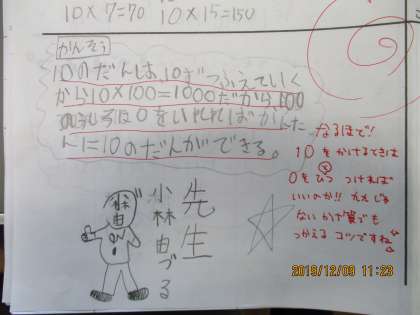 10×7=70 10×15=150
かんそう
10のだんは、10ずつふえていく
から10×100=1000だから、100
は0をいれればかんた
んに10のだんができる。
なるほど!
10をかけるときは
0をひとつ つければ
いいのか!!
ない かけ算でも
つかえる コツですね
先生
小林由づる
2019/12/09 11:23